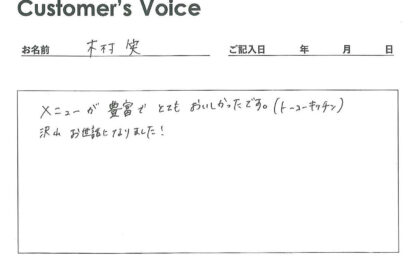 Customer's Voice
お名前 木村 笑 ご記入日 年 月 日
メニューが 豊富で とても おいしかったです。(トーコーキッチン)
沢山 お世話になりました!